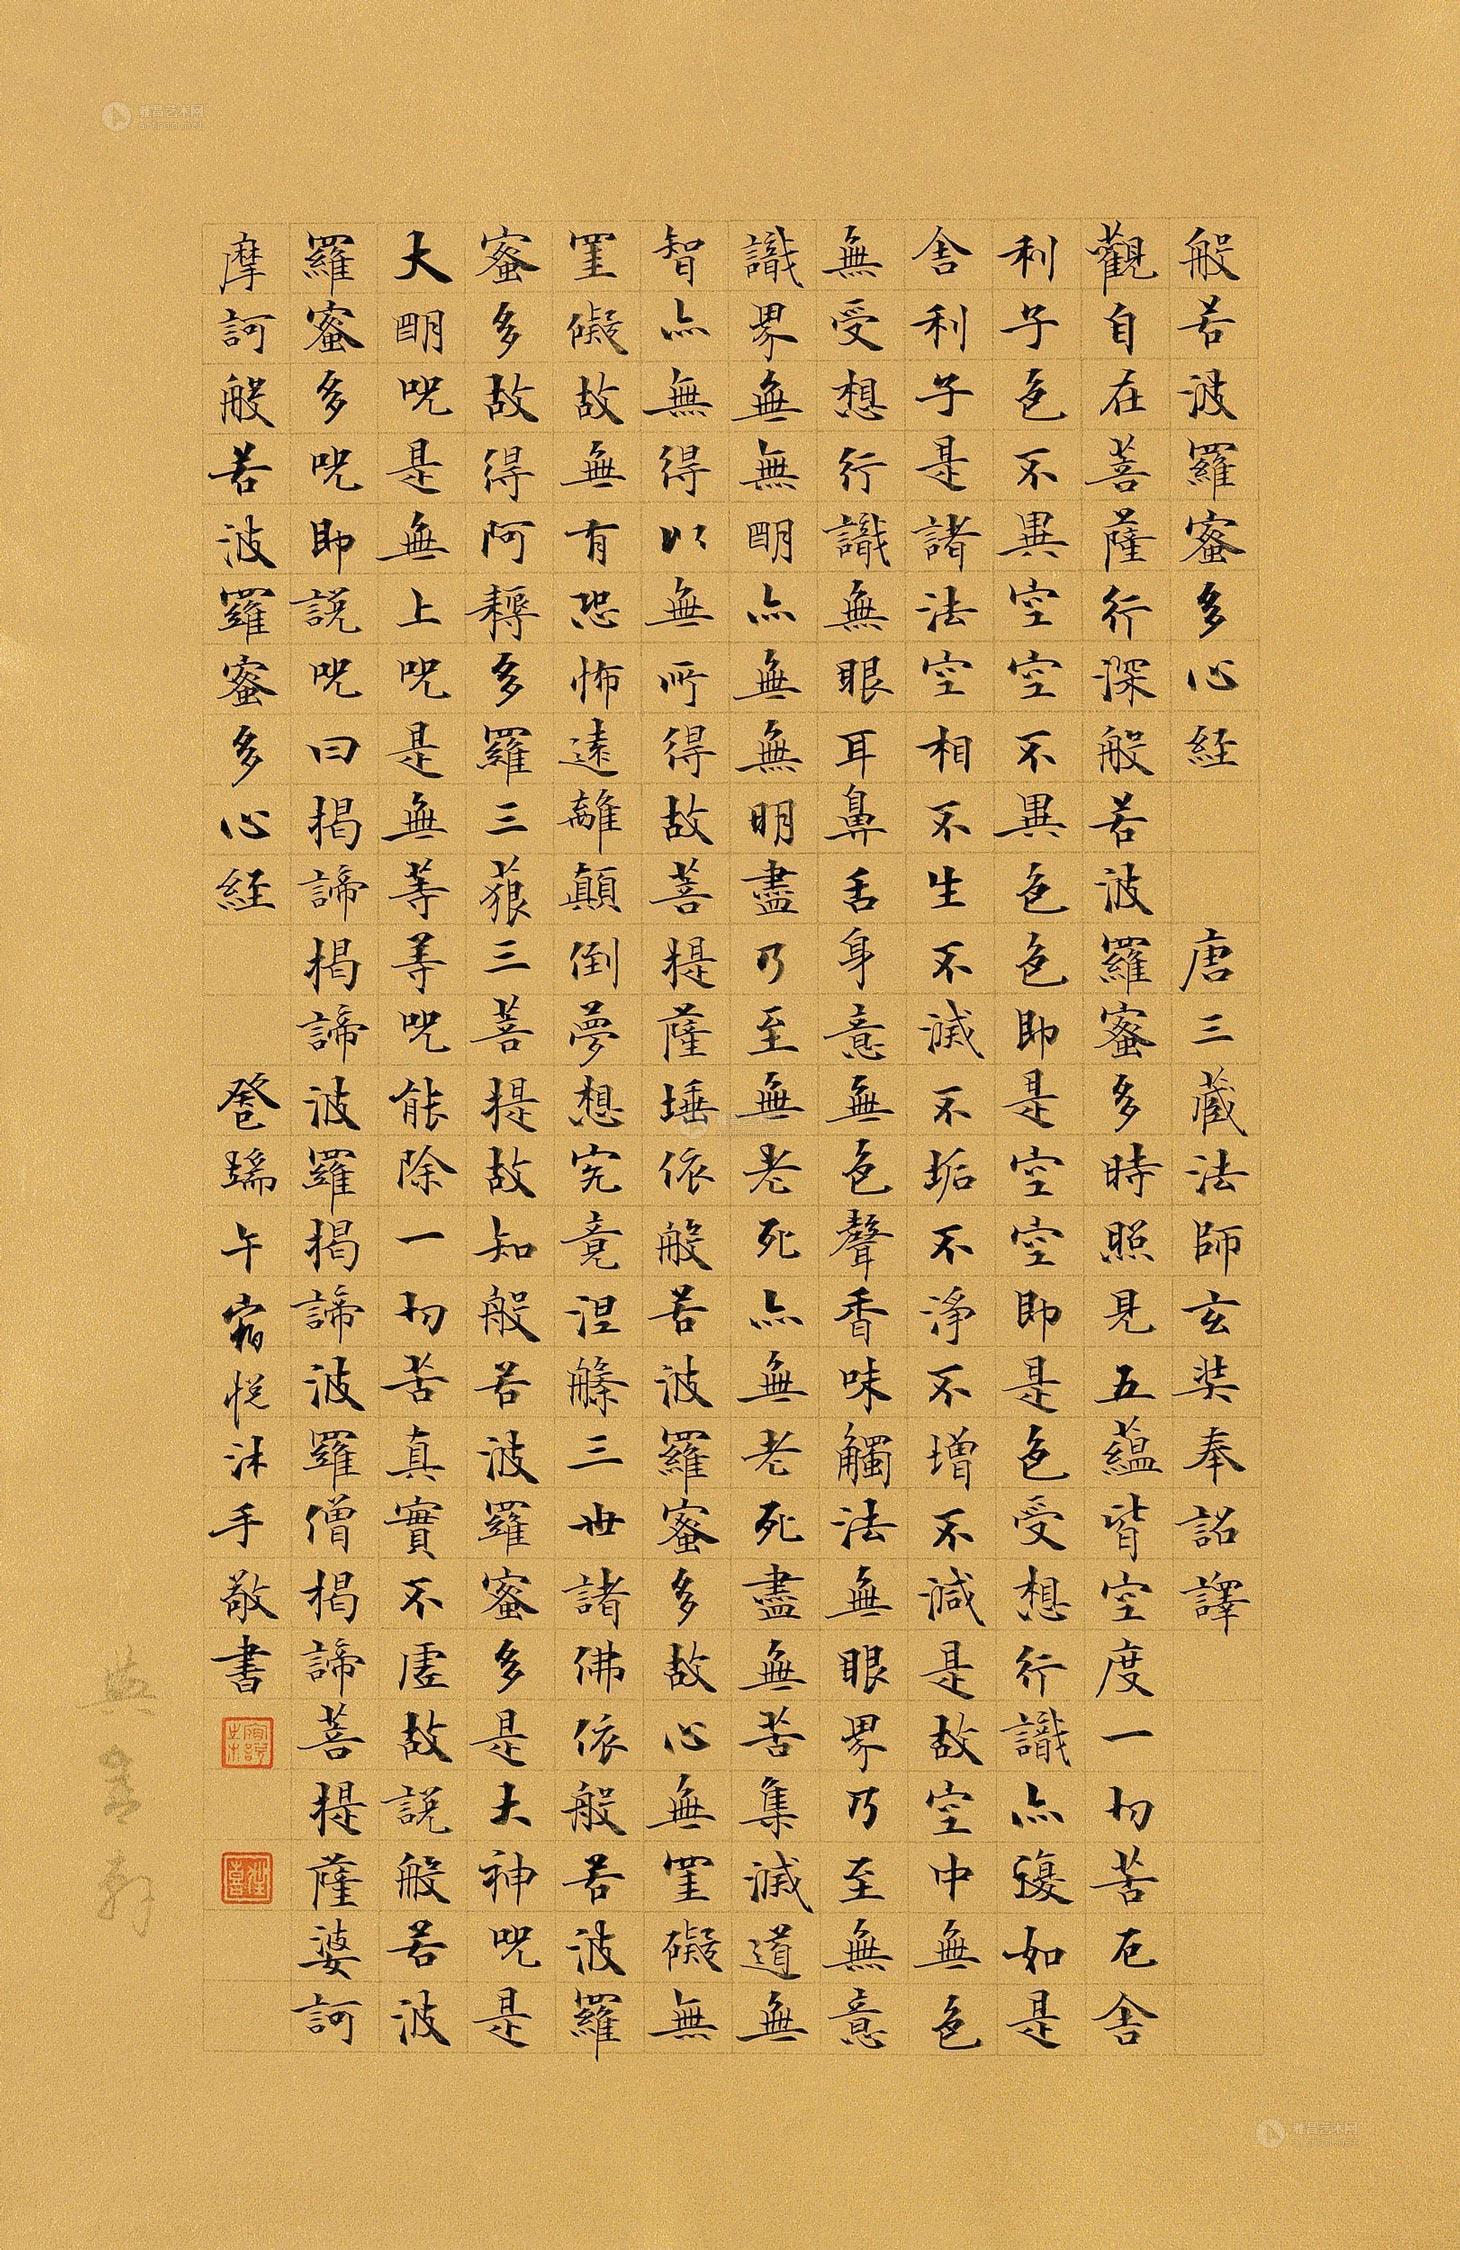 般若波羅蜜多心經 唐三藏法師玄奘奉詔譯
觀自在菩薩行深般若波羅蜜多時照見五蘊皆空度一切苦厄舍
利子色不異空空不異色色即是空空即是色受想行識亦復如是
舍利子是諸法空相不生不滅不垢不淨不增不減是故空中無色
無受想行識無眼耳鼻舌身意無色聲香味觸法無眼界乃至無意
識界無無明亦無無明盡乃至無老死亦無老死盡無苦集滅道無
智亦無得以無所得故菩提薩埵依般若波羅蜜多故心無罣礙無
罣礙故無有恐怖遠離顛倒夢想究竟涅槃三世諸佛依般若波羅
蜜多故得阿耨多羅三藐三菩提故知般若波羅蜜多是大神咒是
大明咒是無上咒是無等等咒能除一切苦真實不虛故說般若波
羅蜜多咒即說咒曰揭諦揭諦波羅揭諦波羅僧揭諦菩提薩婆訶
摩訶般若波羅蜜多心經 癸巳端午甯悅沐手敬書
雅昌艺术网
artron.net
雅昌艺术网
artron.net